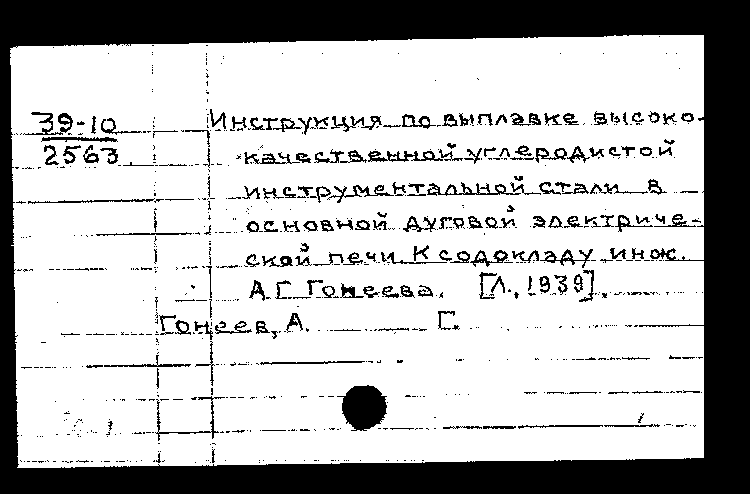 39-10
2563
Инструкция по выплавке высоко-
качественной углеродистой
инструментальной стали в
основной дуговой электриче-
ской печи. К содокладу инж.
А.Г. Гонеева. [Л., 1939].
Гонеев, А. Г.